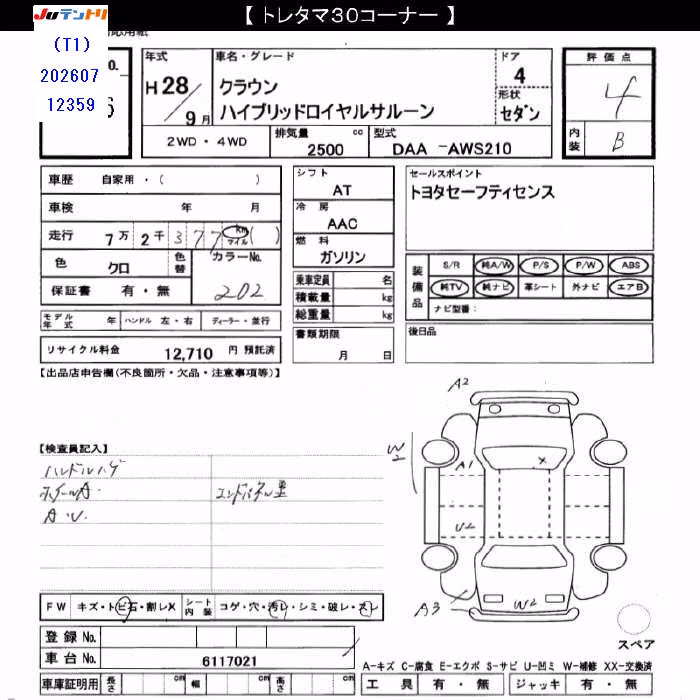 【 トレタマ30コーナー 】
JUテントリ
(T1)
202607
12359
No.
6
年式
H 28／9月
車名・グレード
クラウン
ハイブリッドロイヤルサルーン
ドア
4
形状
セダン
評価点
4
内装
B
2WD・4WD
排気量
2500 cc
型式
DAA -AWS210
車歴 自家用・( )
車検 年 月
走行 7万 2千 377 km マイル ( )
色 クロ
色替
カラーNo.
202
保証書 有・無
モデル年式 年
ハンドル 左・右
ディーラー・並行
リサイクル料金 12,710 円 預託済
シフト
AT
冷房
AAC
燃料
ガソリン
乗車定員 名
積載量 kg
総重量 kg
書類期限
月 日
セールスポイント
トヨタセーフティセンス
装備品
S/R 純A/W P/S P/W ABS
純TV 純ナビ 革シート 外ナビ エアB
ナビ型番:
後日品
【出品店申告欄(不良箇所・欠品・注意事項等)】
【検査員記入】
ハンドルハゲ
ホイールA.
A.U.
A2
W2
A1
U2
A3
W2
FW キズ・トビ石・割レX
シート内装 コゲ・穴・汚レ・シミ・破レ・スレ
登録No.
車台No. 6117021
車庫証明用 長さ cm 幅 cm 高さ cm
スペア
A-キズ C-腐食 E-エクボ S-サビ U-凹ミ W-補修 XX-交換済
工具 有・無 ジャッキ 有・無